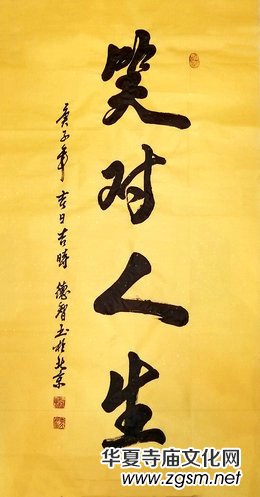 笑对人生
庚子年吉日吉时 德智书于北京
华夏寺庙文化网
www.zgsm.net